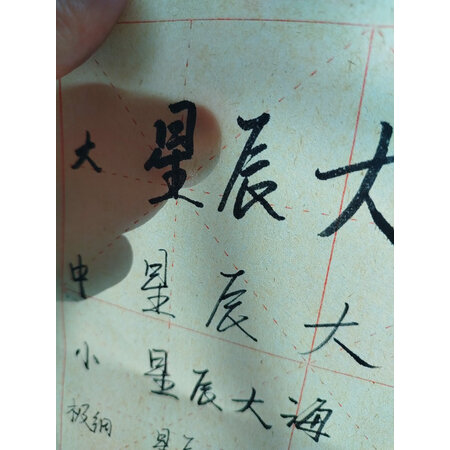 大 星辰大
中 星辰大
小 星辰大海
极细 星辰